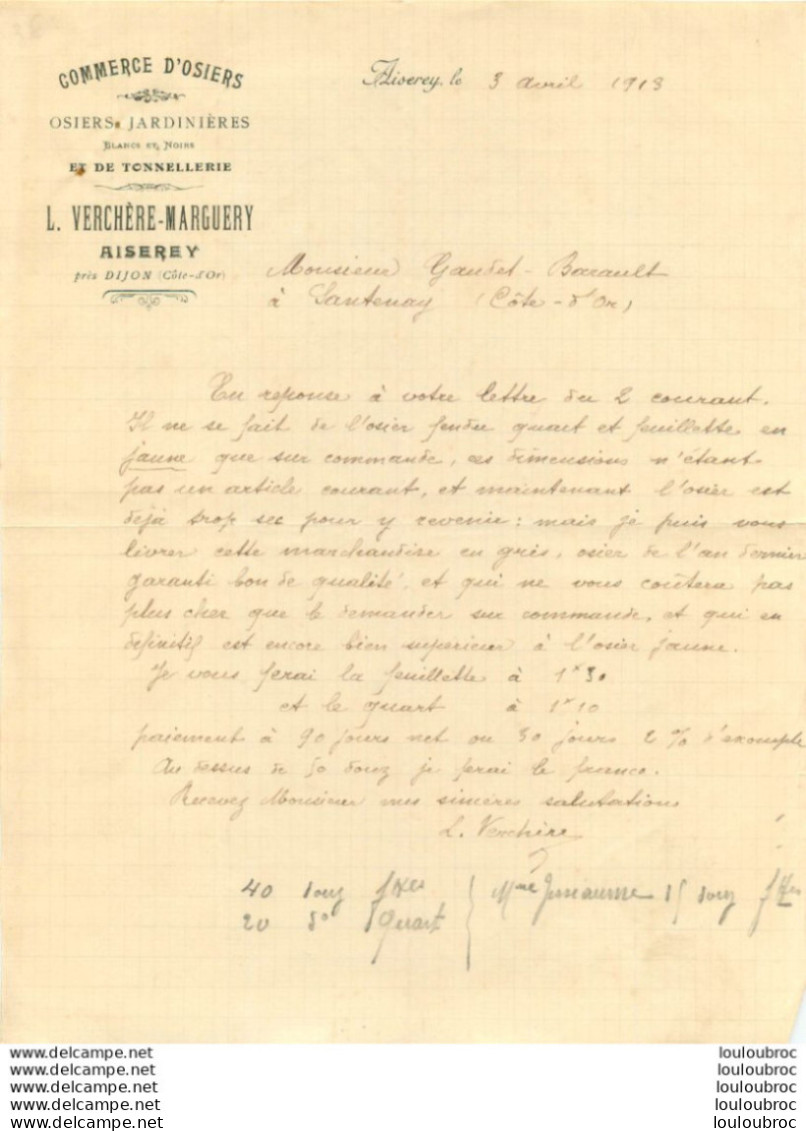 COMMERCE D'OSIERS
OSIERS JARDINIÈRES
BLANCS ET NOIRS
ET DE TONNELLERIE
L. VERCHÈRE-MARGUERY
AISEREY
près DIJON (Côte-d'Or)
Aiserey, le 3 avril 1913
Monsieur Gaudet-Barault
à Santenay (Côte-d'Or)
En reponse à votre lettre du 2 courant.
Il ne se fait de l'osier fendu quart et feuillette en
jaune que sur commande, ces dimensions n'étant
pas un article courant, et maintenant l'osier est
déjà trop sec pour y revenir : mais je puis vous
livrer cette marchandise en gris, osier de l'an dernier
garanti bon de qualité, et qui ne vous coûtera pas
plus cher que le demander sur commande, et qui en
definitif est encore bien superieur à l'osier jaune.
Je vous ferai la feuillette à 1 30
et le quart à 1 10
paiement à 90 jours net ou 30 jours 2 % d'escompte
Au dessus de 50 douz je ferai le franco.
Recevez Monsieur mes sincères salutations
L. Verchère
40 douz fttes
20 do Quart
Mme 15 douz fttes
www.delcampe.net louloubroc
www.delcampe.net louloubroc
www.delcampe.net louloubroc
www.delcampe.net louloubroc
www.delcampe.net louloubroc